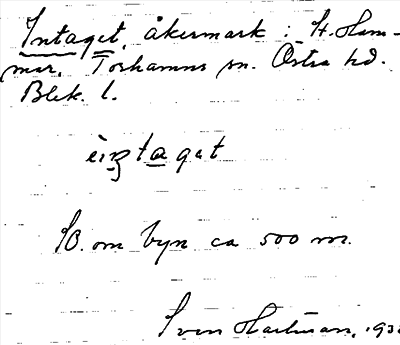 Intaget, åkermark : St. Ham-
mar, Torhamns sn. Östra hd.
Blek. l.
ìŋtagət
SO. om byn ca 500 m.
Sven Hartman, 193